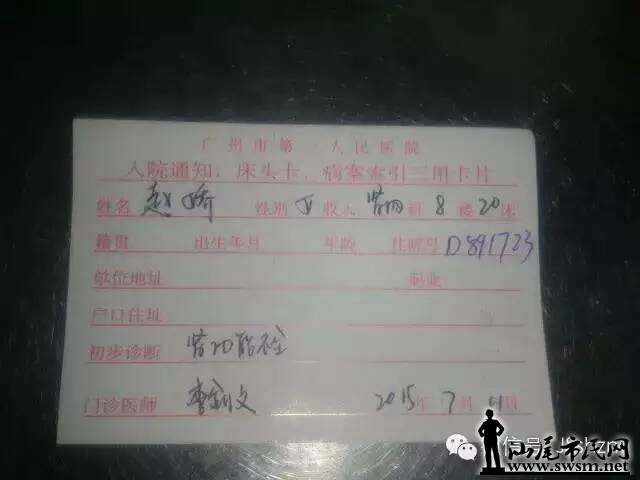 广州市第一人民医院
入院通知、床头卡、病案索引三用卡片
姓名 赵娇 性别 女 收入 肾内 科 8 楼 20 床
籍贯 出生年月 年龄 住院号 D891723
单位地址 职业
户口住址
初步诊断 肾功能不全
门诊医师 文 2015年7月 日
微信号
汕尾市民网
www.swsm.net